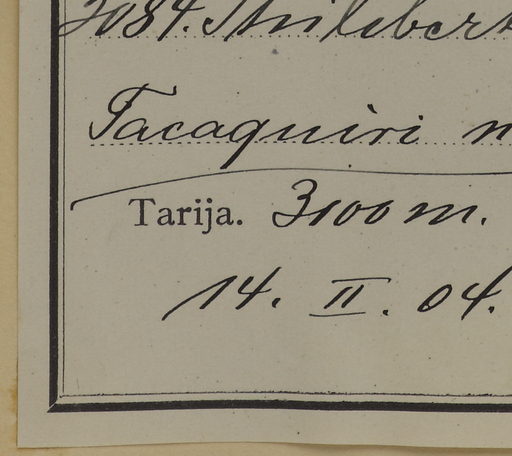 3084. Philibert
Tacaquiri n
Tarija. 3100 m.
14. II. 04.